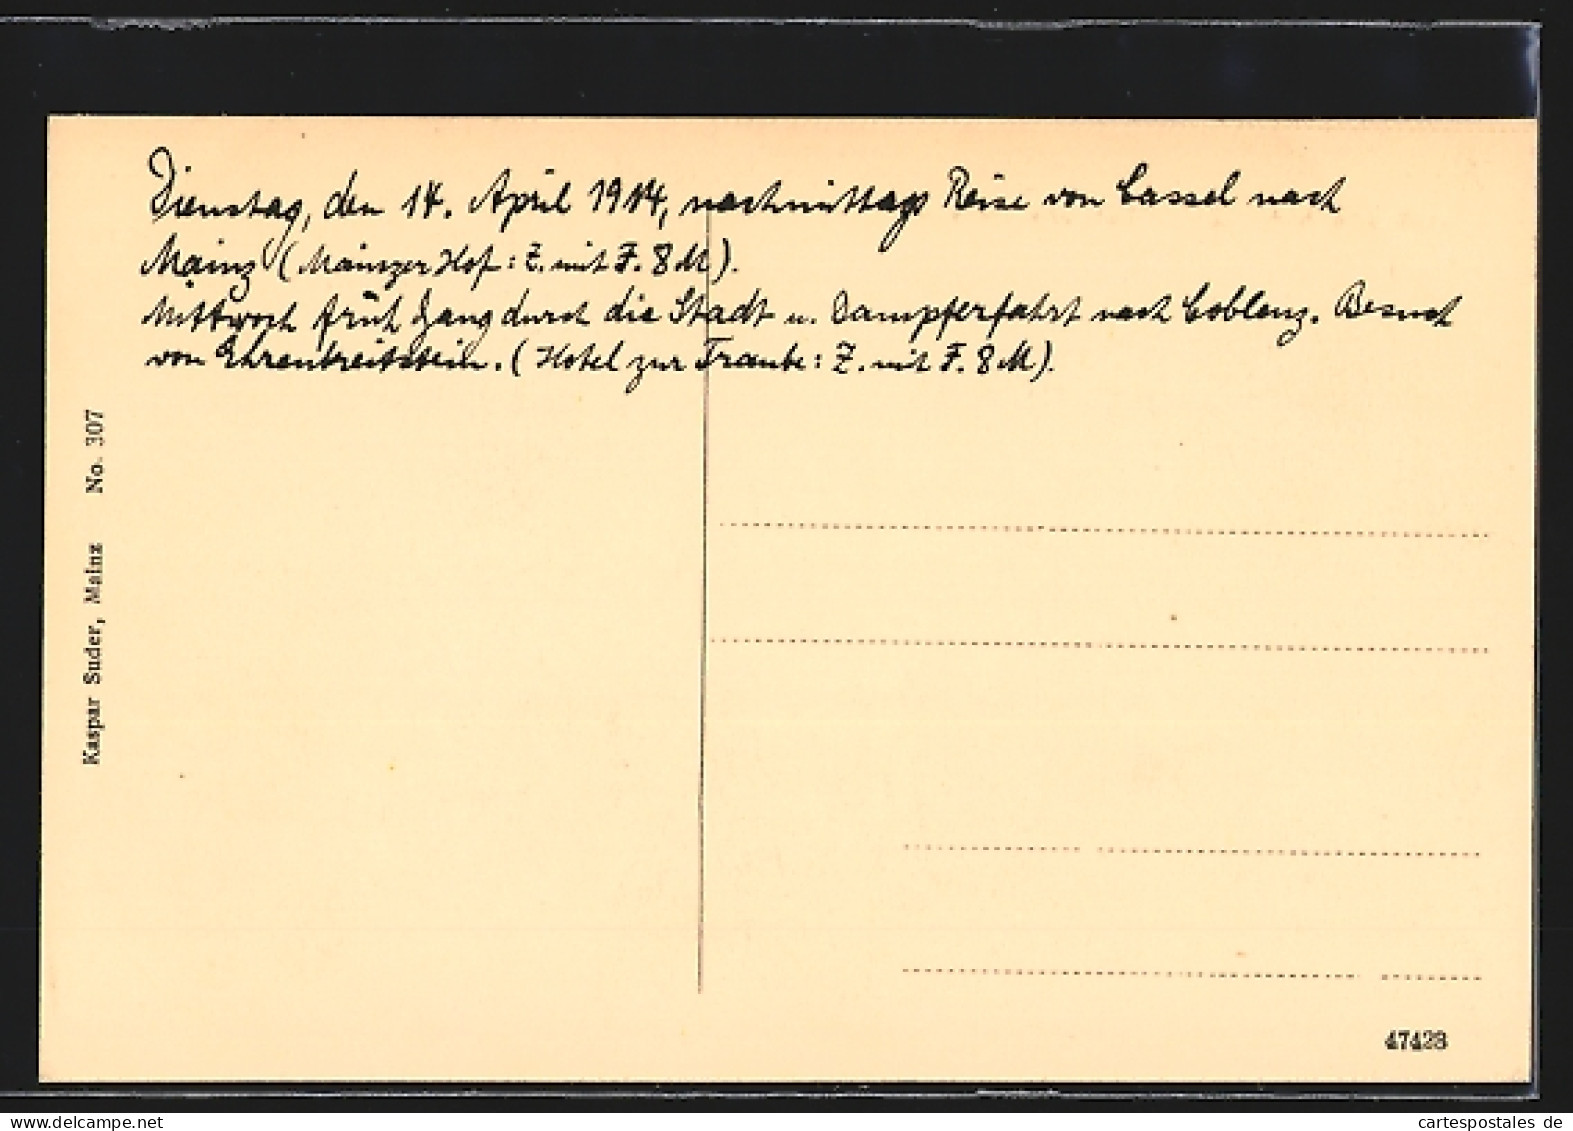 Dienstag, den 14. April 1914, nachmittags Reise von Cassel nach
Mainz (Mainzer Hof: Z. mit F. 8 M).
Mittwoch früh Gang durch die Stadt u. Dampferfahrt nach Coblenz. Besuch
von Ehrenbreitstein. (Hotel zur Traube: Z. mit F. 8 M).
Kaspar Suder, Mainz No. 307
47428
cartespostales.de